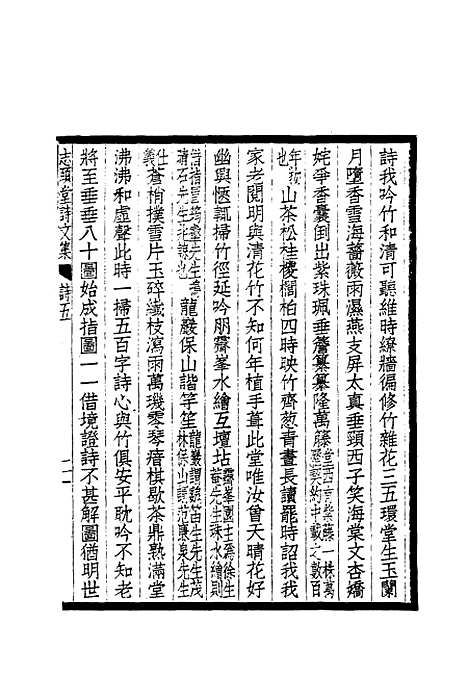 詩我吟竹和清可聽維時繚牆徧修竹雜花三五環堂生玉蘭
月墮香雪海薔薇雨濕燕支屏太真垂頸西子笑海棠文杏嬌
姹爭香囊倒出紫珠珮垂簷纂纂隆萬藤
年故山茶松桂櫻櫚柏四時映竹齊葱青晝長讀罷時詔我我
家老閱明與清花竹不知何年植手葺此堂唯汝曾天晴花好
幽興愜輒掃竹徑延吟朋霽峯水繪互壇坫
龍巖保山諧竽笙
蒼梢撲雪片玉碎纖枝瀉雨萬璣零琴瘖棋歇茶鼎熟滿堂
沸沸和虛聲此時一掃五百字詩心與竹俱安平耽吟不知老
將至垂垂八十圖始成指圖一一借境證詩不甚解圖猶明世
志頤堂詩文集 詩五 十一